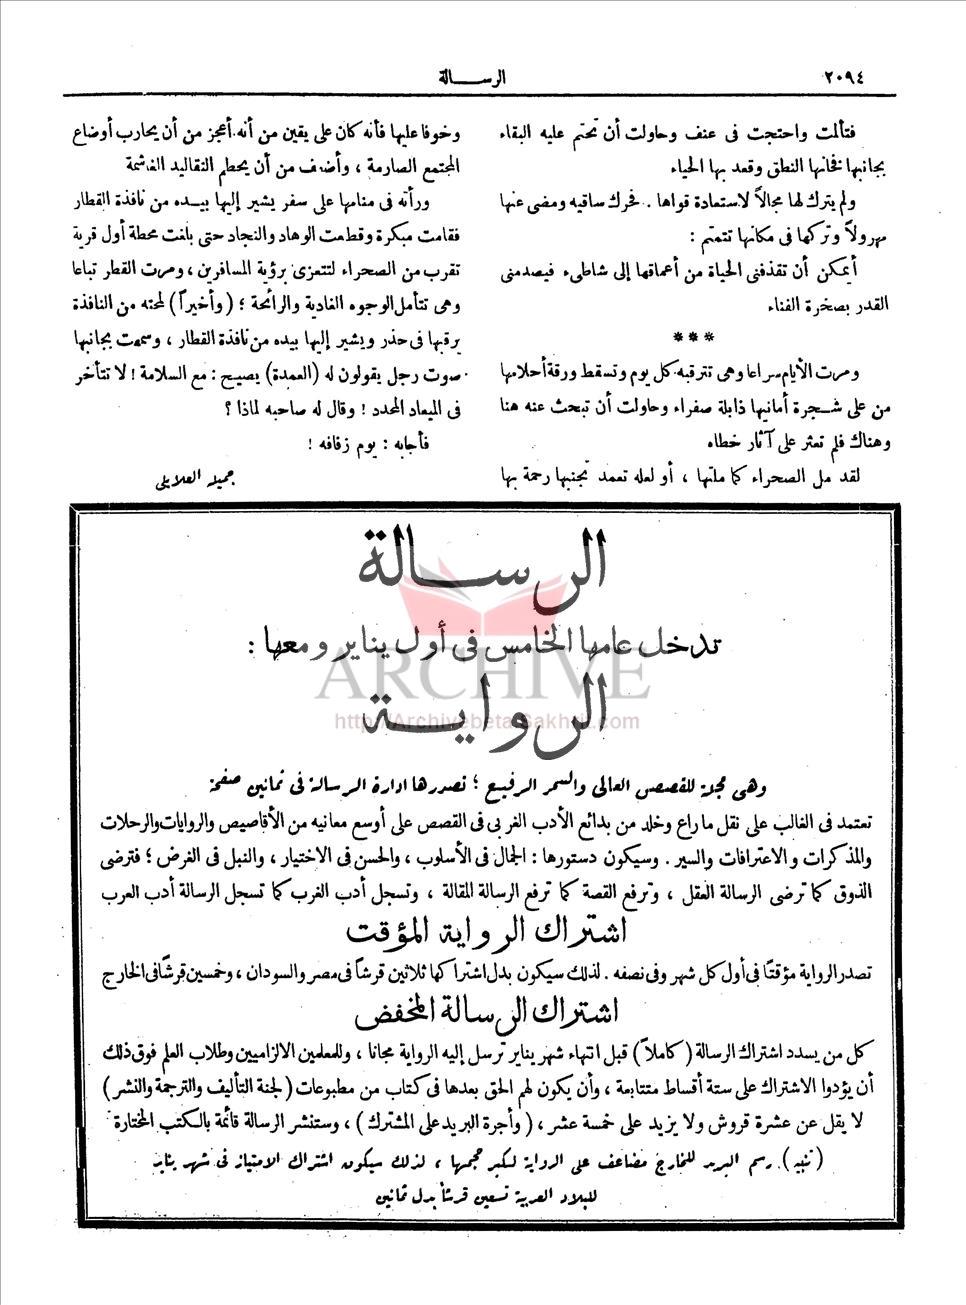 ٢٠٩٤
الرسالة
فتألمت واحتجت فى عنف وحاولت أن تحتم عليه البقاء
بجانبها فخانها النطق وقعد بها الحياء
ولم يترك لها مجالاً لاستعادة قواها . فحرك ساقيه ومضى عنها
مهرولاً وتركها فى مكانها تتمتم :
أيمكن أن تقذفنى الحياة من أعماقها إلى شاطىء فيصدمنى
القدر بصخرة الفناء
***
ومرت الأيام سراعا وهى تترقبه كل يوم وتسقط ورقة أحلامها
من على شجرة أمانيها ذابلة صفراء وحاولت أن تبحث عنه هنا
وهناك فلم تعثر على آثار خطاه
لقد مل الصحراء كما ملتها ، أو لعله تعمد تجنبها رحمة بها
وخوفا عليها فأنه كان على يقين من أنه أعجز من أن يحارب أوضاع
المجتمع الصارمة ، وأضف من أن يحطم التقاليد الغاشمة
ورأته فى منامها على سفر يشير إليها بيده من نافذة القطار
فقامت مبكرة وقطعت الوهاد والنجاد حتى بلغت محطة أول قرية
تقرب من الصحراء لتتعزى برؤية المسافرين ، ومرت القطر تباعا
وهى تتأمل الوجوه الغادية والرائحة ؛ (وأخيراً) لمحته من النافذة
يرقبها فى حذر ويشير إليها بيده من نافذة القطار ، وسمعت بجانبها
صوت رجل يقولون له (العمدة) يصيح : مع السلامة ! لا تتأخر
فى الميعاد المحدد ! وقال له صاحبه لماذا ؟
فأجابه : يوم زفافه !
جميلة العلايلى
الرسالة
تدخل عامها الخامس فى أول يناير ومعها :
الرواية
ARCHIVE
http://Archivebeta.Sakhrit.com
وهى مجلة للقصص العالى والسمر الرفيع ؛ تصدرها ادارة الرسالة فى ثمانين صفحة
تعتمد فى الغالب على نقل ما راع وخلد من بدائع الأدب الغربى فى القصص على أوسع معانيه من الأقاصيص والروايات والرحلات
والمذكرات والاعترافات والسير . وسيكون دستورها : الجمال فى الأسلوب ، والحسن فى الاختيار ، والنبل فى الغرض ؛ فترضى
الذوق كما ترضى الرسالة العقل ، وترفع القصة كما ترفع الرسالة المقالة ، وتسجل أدب الغرب كما تسجل الرسالة أدب العرب
اشتراك الرواية المؤقت
تصدر الرواية مؤقتًا فى أول كل شهر وفى نصفه . لذلك سيكون بدل اشتراكها ثلاثين قرشاً فى مصر والسودان ، وخمسين قرشًا فى الخارج
اشتراك الرسالة المخفض
كل من يسدد اشتراك الرسالة (كاملاً) قبل انتهاء شهر يناير ترسل إليه الرواية مجانا ، وللمعلمين الالزاميين وطلاب العلم فوق ذلك
أن يؤدوا الاشتراك على ستة أقساط متتابعة ، وأن يكون لهم الحق بعدها فى كتاب من مطبوعات (لجنة التأليف والترجمة والنشر)
لا يقل عن عشرة قروش ولا يزيد على خمسة عشر ، (وأجرة البريد على المشترك) ، وستنشر الرسالة قائمة بالكتب المختارة
(تنبيه) رسم البريد للخارج مضاعف على الرواية لكبر حجمها ، لذلك سيكون اشتراك الامتياز فى شهر يناير
للبلاد العربية تسعين قرشاً بدل ثمانين